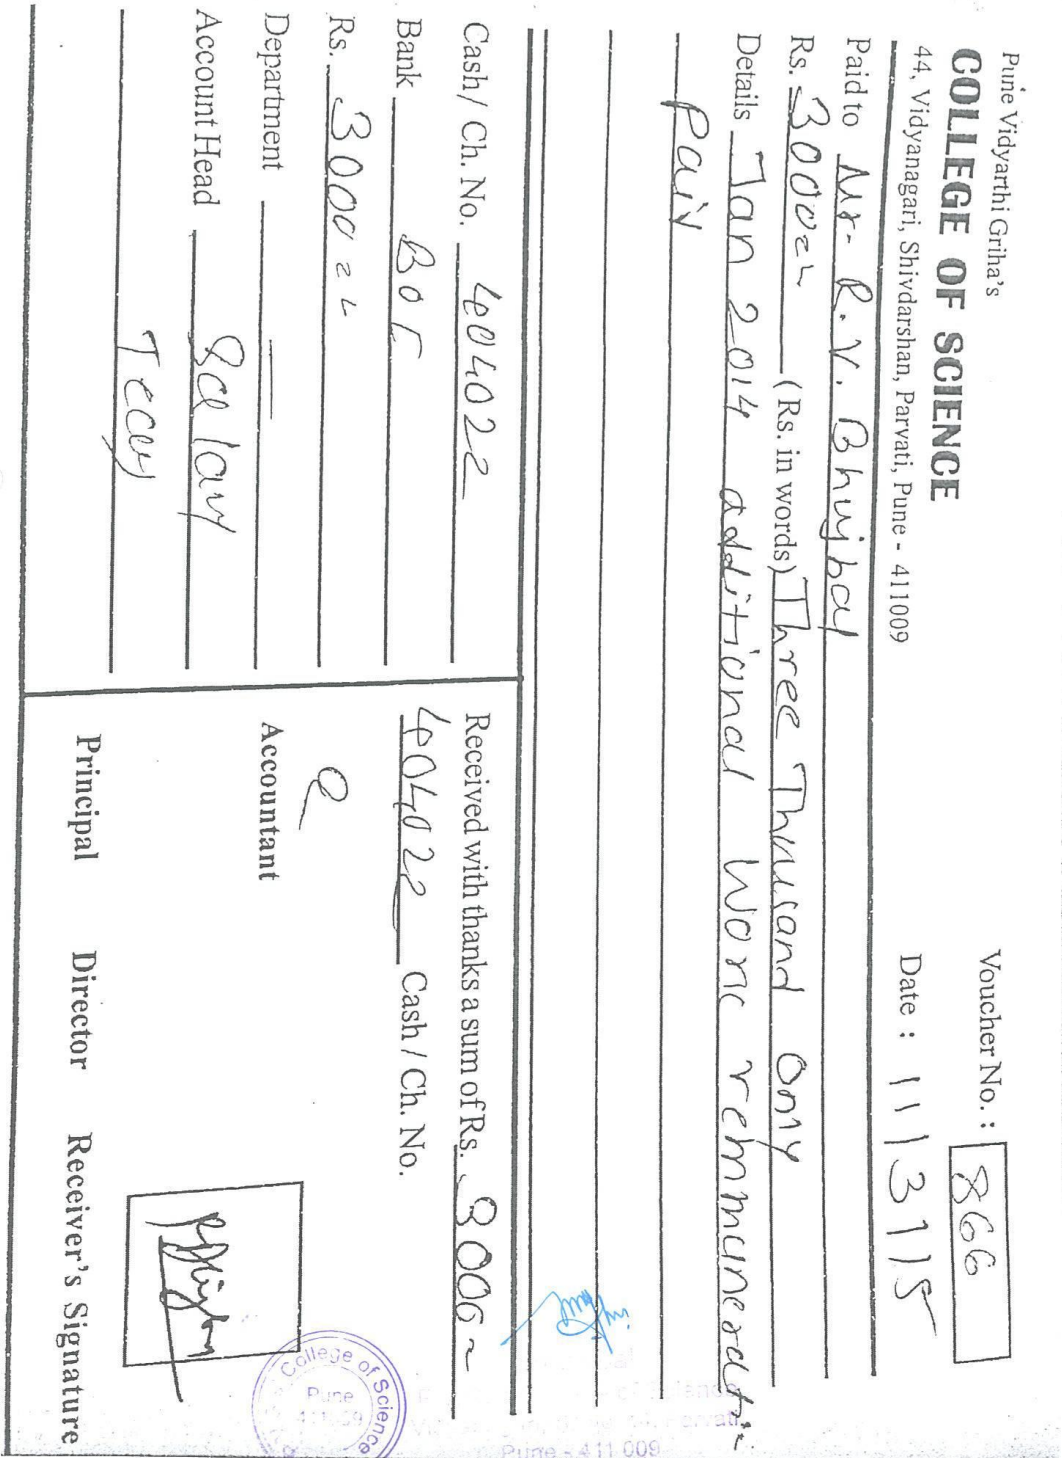 Pune Vidyarthi Griha's
COLLEGE OF SCIENCE
44, Vidyanagari, Shivdarshan, Parvati, Pune - 411009
Voucher No. : 866
Date : 11/3/15
Paid to Mr. R. V. Bhujbal
Rs. 3000 (Rs. in words) Three Thousand Only
Details Jan 2014 additional Work
paid
Cash/ Ch. No. 404022
Bank
Rs. 3000
Department
Account Head Salary
Received with thanks a sum of Rs. 3000
404022 Cash / Ch. No.
Accountant
Principal Director Receiver's Signature
College of Science
Pune
Pune - 411 009